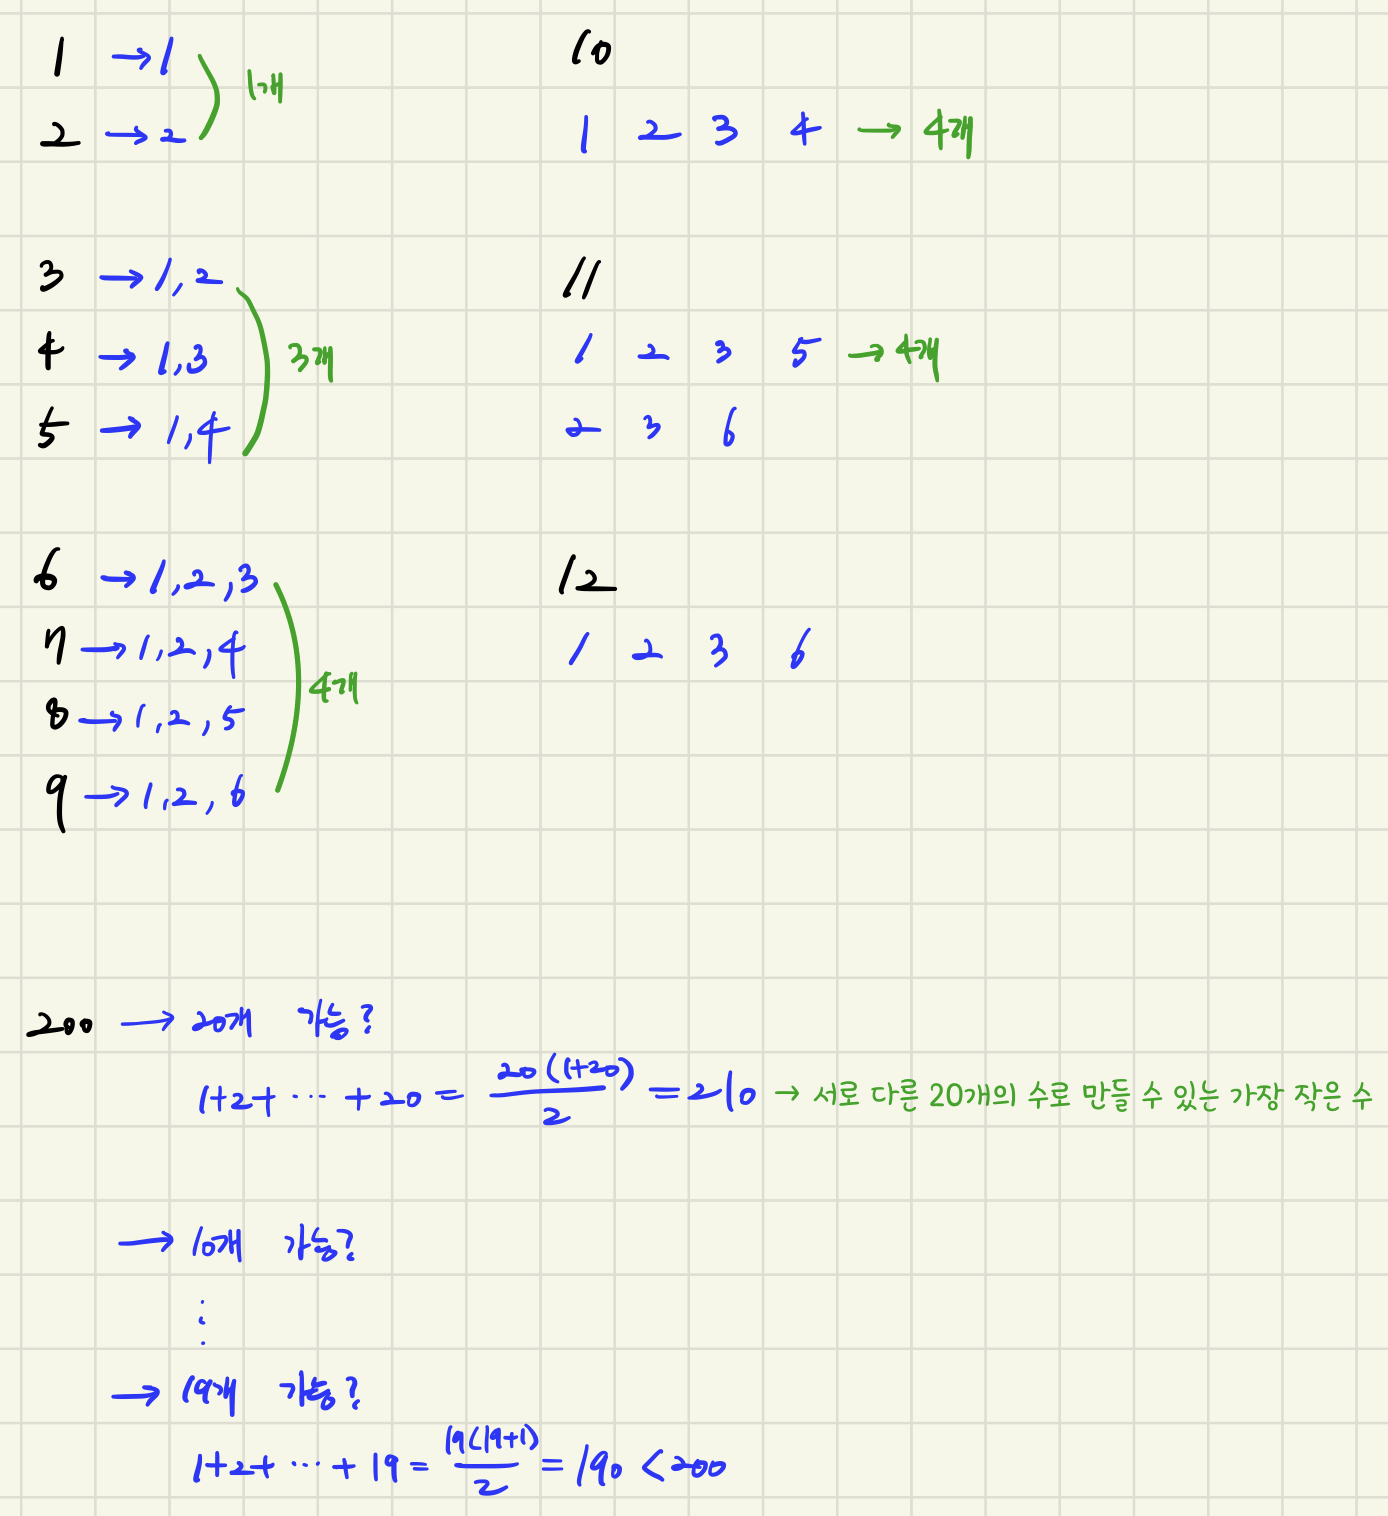 1 → 1
2 → 2
1개
3 → 1, 2
4 → 1, 3
5 → 1, 4
3개
6 → 1, 2, 3
7 → 1, 2, 4
8 → 1, 2, 5
9 → 1, 2, 6
4개
10
1 2 3 4 → 4개
11
1 2 3 5 → 4개
2 3 6
12
1 2 3 6
200 → 20개 가능?
1+2+ ⋯ +20 = 20(1+20)/2 = 210 → 서로 다른 20개의 수로 만들 수 있는 가장 작은 수
→ 10개 가능?
⋮
→ 19개 가능?
1+2+ ⋯ + 19 = 19(19+1)/2 = 190 < 200